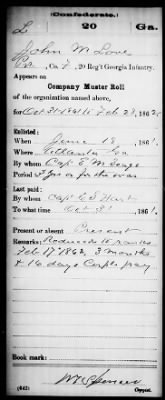 (Confederate.)
L 20 Ga.
John M Love
Pvt, Co. F, 20 Reg't Georgia Infantry.
Appears on
Company Muster Roll
of the organization named above,
for Oct 31 1861 to Feb 28, 1862.
Enlisted:
When June 13, 1861.
Where Atlanta Ga
By whom Capt E. M. Seago
Period 3 yrs or for the war
Last paid:
By whom Capt C S Hart
To what time Oct 31, 1861.
Present or absent Present
Remarks: Reduced to ranks
Feb 17 1862, 3 months
& 16 days Corpls pay
Book mark:
(642) Copyist.